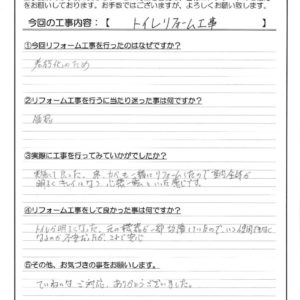 を願いしております。お手数ではございますが、よろしくお願い致します。
今回の工事内容：【 トイレリフォーム工事 】
①今回リフォーム工事を行ったのはなぜですか？
老朽化のため
②リフォーム工事を行うに当たり迷った事は何ですか？
価格
③実際に工事を行ってみていかがでしたか？
実施して良った。床、カベも一緒にリフォームしたので室内全体が
明るくキレイになり、心機一転といった感じです。
④リフォーム工事をして良かった事は何ですか？
トイレが明るくなった。元の機器が一部故障していたので、いつ使用不可に
なるのか不安だったが、これで安心
⑤その他、お気づきの事をお願いします。
ていねいなご対応、ありがとうございました。